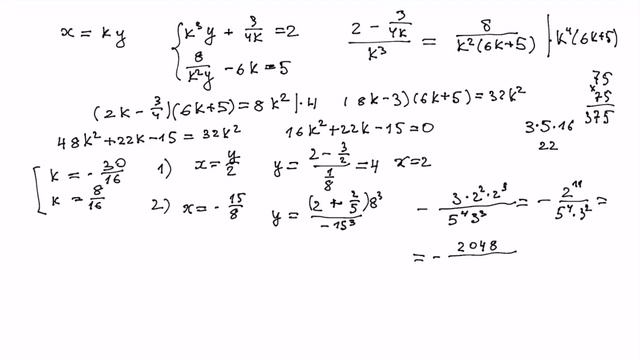 x = ky
{ k³y + 3/4k = 2
8/k²y - 6k = 5
(2 - 3/4k)/k³ = 8/(k²(6k+5)) | · k⁴(6k+5)
(2k - 3/4)(6k+5) = 8k² | · 4
(8k-3)(6k+5) = 32k²
75
× 75
375
48k² + 22k - 15 = 32k²
16k² + 22k - 15 = 0
3 · 5 · 16
22
[ k = - 30/16
k = 8/16
1) x = y/2 y = (2 - 3/2)/(1/8) = 4 x = 2
2) x = - 15/8 y = (2 + 2/5)8³/-15³
- 3 · 2² · 2⁹/5⁴3³ = - 2¹¹/5⁴ · 3² =
= - 2048